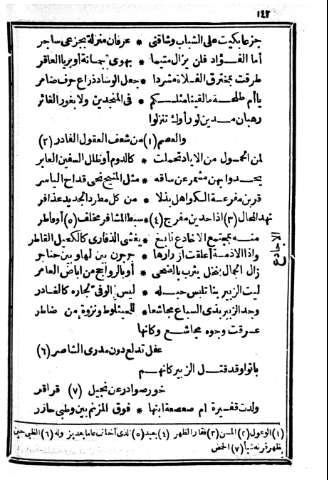 ١٤٢
جزعا بكيت على الشباب وشاقنى * عرفان منزلة بجزعى ساجر
أما الفؤاد فلن يزال متيما * بهوى جمانة أو بريا العاقر
طرقت بمخترق الفلاة مشردا * جعل الوساد ذراع حرف ضامر
يا أم طلحة ما لقينا مثلكم * فى المنجدين ولا بغور الغائر
رهبان مدين لو رأوك تنزلوا
والعصم (١) من شعف العقول الفادر (٢)
لمن الحمول من الاياد تحملت * كالدوم أو ظلل السفين العابر
يحدو بهن مشمر عن ساقه * مثل المنيح نحى قداح الياسر
قربن مفرعة الكواهل بزلا * من كل مطرد الجديد عذافر
تهد المحال (٣) اذا حدين مفرج (٤) * سبط المشافر مخلف (٥) أو فاطر
منه بمجتمع الاخادع نابع * يغشى الذفارى كالكحيل القاطر
واذا الازمة أعلقت أزرارها * جرجرن بين لها وبين حناجر
زال الجمال بنخل يثرب بالضحى * أو بالرواجح من اباض العامر
ليت الزبير بنا تلبس حبله * ليس الوفى لجاره كالغادر
وجد الزبير بذى السباع مجاشعا * للميثلوط ونزوة من ضاطر
عرقت وجوه مجاشع وكانها
عقل تدلع دون مدرى الشاصر (٦)
باتوا وقد قتل الزبير كانهم
خور صوادر عن نجيل (٧) قراقر
ولدت قفيرة أم صعصعة ابنها * فوق المزنم بين وطبى حازر
الاجادع
(١) الوعول (٢) المسن (٣) فقار الظهر (٤) بعيد (٥) الذى أخلف عاما بعد بزوله (٦) الظبى حين يظهر قرنه نتأ (٧) الحمض